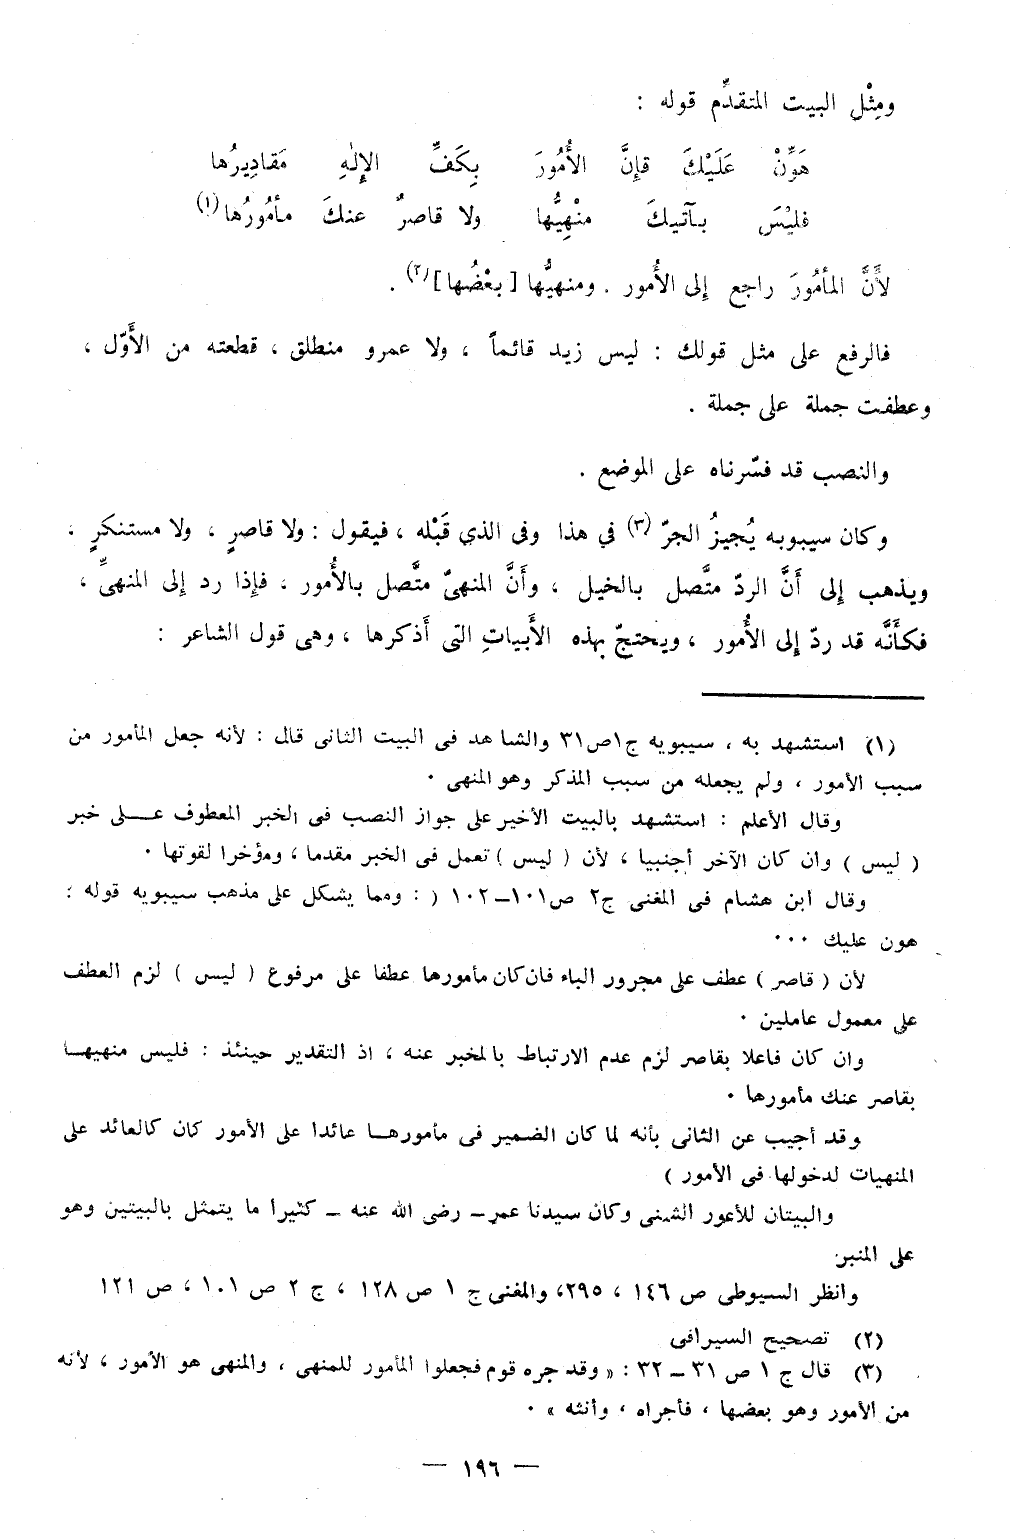 ومِثْلِ البيت المتقدِّم قوله :
هَوِّنْ عَلَيْكَ فإِنَّ الأُمُورَ بِكَفِّ الإِلٰهِ مَقادِيرُها
فليْسَ بآتيكَ منْهِيُّها ولا قاصرٌ عنكَ مأمُورُها(١)
لأَنَّ المأمُورَ راجع إِلى الأُمور . ومنهيُّها [ بعْضُها ](٢) .
فالرفع على مثل قولك : ليس زيد قائماً ، ولا عمرو منطلق ، قطعته من الأَوّل ،
وعطفت جملة على جملة .
والنصب قد فسّرناه على الموضع .
وكان سيبويه يُجيزُ الجرّ (٣) في هذا وفى الذي قَبْله ، فيقول : ولا قاصرٍ ، ولا مستنكرٍ .
ويذهب إِلى أَنَّ الردّ متَّصل بالخيل ، وأَنَّ المنهىّ متَّصل بالأُمور ، فإِذا رد إِلى المنهىِّ ،
فكأَنَّه قد ردّ إِلى الأُمور ، ويحتجّ بهذه الأَبياتِ التى أَذكرها ، وهى قول الشاعر :
(١) استشهد به ، سيبويه ج١ص٣١ والشاهد فى البيت الثانى قال : لأنه جعل المأمور من
سبب الأمور ، ولم يجعله من سبب المذكر وهو المنهى .
وقال الأعلم : استشهد بالبيت الأخير على جواز النصب فى الخبر المعطوف عـلى خبر
( ليس ) وان كان الآخر أجنبيا ، لأن ( ليس ) تعمل فى الخبر مقدما ، ومؤخرا لقوتها .
وقال ابن هشام فى المغنى ج٢ ص١٠١ــ١٠٢ ( : ومما يشكل على مذهب سيبويه قوله :
هون عليك ...
لأن ( قاصر ) عطف على مجرور الباء فان كان مأمورها عطفا على مرفوع ( ليس ) لزم العطف
على معمول عاملين .
وان كان فاعلا بقاصر لزم عدم الارتباط بالمخبر عنه ، اذ التقدير حينئذ : فليس منهيهـا
بقاصر عنك مأمورها .
وقد أجيب عن الثانى بأنه لما كان الضمير فى مأمورهـا عائدا على الأمور كان كالعائد على
المنهيات لدخولها فى الأمور )
والبيتان للأعور الشنى وكان سيدنا عمر ــ رضى الله عنه ــ كثيرا ما يتمثل بالبيتين وهو
على المنبر
وانظر السيوطى ص ١٤٦ ، ٢٩٥، والمغنى ج ١ ص ١٢٨ ، ج ٢ ص ١٠١ ، ص ١٢١
(٢) تصحيح السيرافى
(٣) قال ج ١ ص ٣١ ــ ٣٢ : « وقد جره قوم فجعلوا المأمور للمنهى ، والمنهى هو الأمور ، لأنه
من الأمور وهو بعضها ، فأجراه ، وأنثه » .
— ١٩٦ —